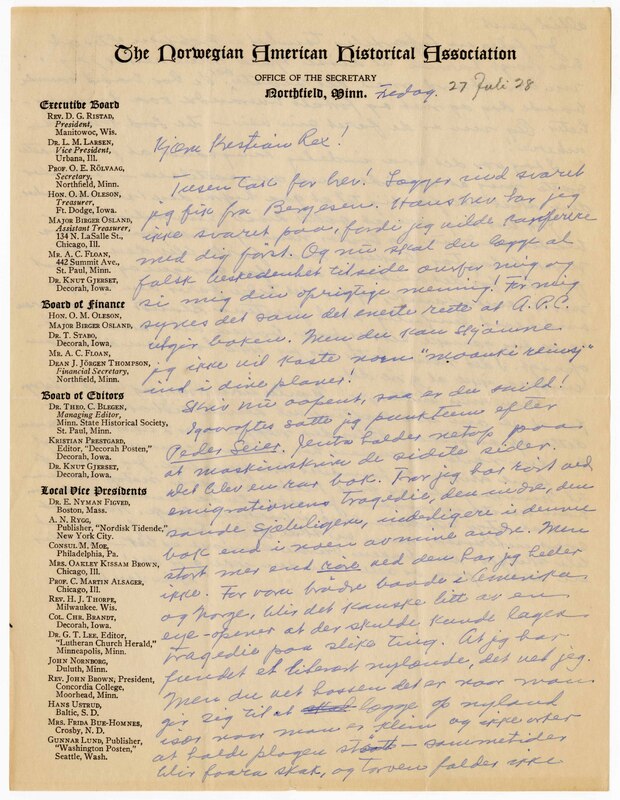 The Norwegian American Historical Association
OFFICE OF THE SECRETARY
Northfield, Minn. Fredag. 27 Juli 28
Executive Board
REV. D. G. RISTAD,
President,
Manitowoc, Wis.
DR. L. M. LARSEN,
Vice President,
Urbana, Ill.
PROF. O. E. RÖLVAAG,
Secretary,
Northfield, Minn.
HON. O. M. OLESON,
Treasurer,
Ft. Dodge, Iowa.
MAJOR BIRGER OSLAND,
Assistant Treasurer,
134 N. LaSalle St.,
Chicago, Ill.
MR. A. C. FLOAN,
442 Summit Ave.,
St. Paul, Minn.
DR. KNUT GJERSET,
Decorah, Iowa.
Board of Finance
HON. O. M. OLESON,
MAJOR BIRGER OSLAND,
DR. T. STABO,
Decorah, Iowa.
MR. A. C. FLOAN,
DEAN J. JÖRGEN THOMPSON,
Financial Secretary,
Northfield, Minn.
Board of Editors
DR. THEO. C. BLEGEN,
Managing Editor,
Minn. State Historical Society,
St. Paul, Minn.
KRISTIAN PRESTGARD,
Editor, "Decorah Posten,"
Decorah, Iowa.
DR. KNUT GJERSET,
Decorah, Iowa.
Local Vice Presidents
DR. E. NYMAN FIGVED,
Boston, Mass.
A. N. RYGG,
Publisher, "Nordisk Tidende,"
New York City.
CONSUL M. MOE,
Philadelphia, Pa.
MRS. OAKLEY KISSAM BROWN,
Chicago, Ill.
PROF. C. MARTIN ALSAGER,
Chicago, Ill.
REV. H. J. THORPE,
Milwaukee, Wis.
COL. CHR. BRANDT,
Decorah, Iowa.
DR. G. T. LEE, Editor,
"Lutheran Church Herald,"
Minneapolis, Minn.
JOHN NORNBORG,
Duluth, Minn.
REV. JOHN BROWN, President,
Concordia College,
Moorhead, Minn.
HANS USTRUD,
Baltic, S. D.
MRS. FRIDA BUE-HOMNES,
Crosby, N. D.
GUNNAR LUND, Publisher,
"Washington Posten,"
Seattle, Wash.
Kjære Kristian Rex!
Tusen takk for brev! Lægger ind svaret
jeg fik fra Bergesen. Hans brev har jeg
ikke svaret paa, fordi jeg vilde konferere
med dig først. Og nu skal du lægge al
falsk beskedenhet tilside overfor mig og
si mig din oprigtige mening! For mig
synes det som det eneste rette at A.P.C.
utgir boken. Men du kan skjønne
jeg ikke vil kaste noen "
ind i dine planer!
Skriv nu aapent, saa er du snild!
Igaaraftes satte jeg punktum efter
Peder Seier. Jenta holder netop paa
at maskinskrive de sidste sider.
Det blev en rar bok. Tror jeg har rørt ved
emigrationens tragedie, den indre, den
sande sjælelige, inderligere i denne
bok end i noen av mine andre. Men
stort mer end røre ved den har jeg heller
ikke. For vore brødre baade i Amerika
og Norge, blir det kanske litt av en
eye-opener at der skulde kunde lages
tragedie paa slike ting. At jeg har
fundet et literært nylænde, det vet jeg.
Men du vet hossen det er naar man
gir sig til at lægge op nyland
især naar man er klein og ikke orker
at holde plogen støtt – sommetider
blir foara skak, og torven falder ikke